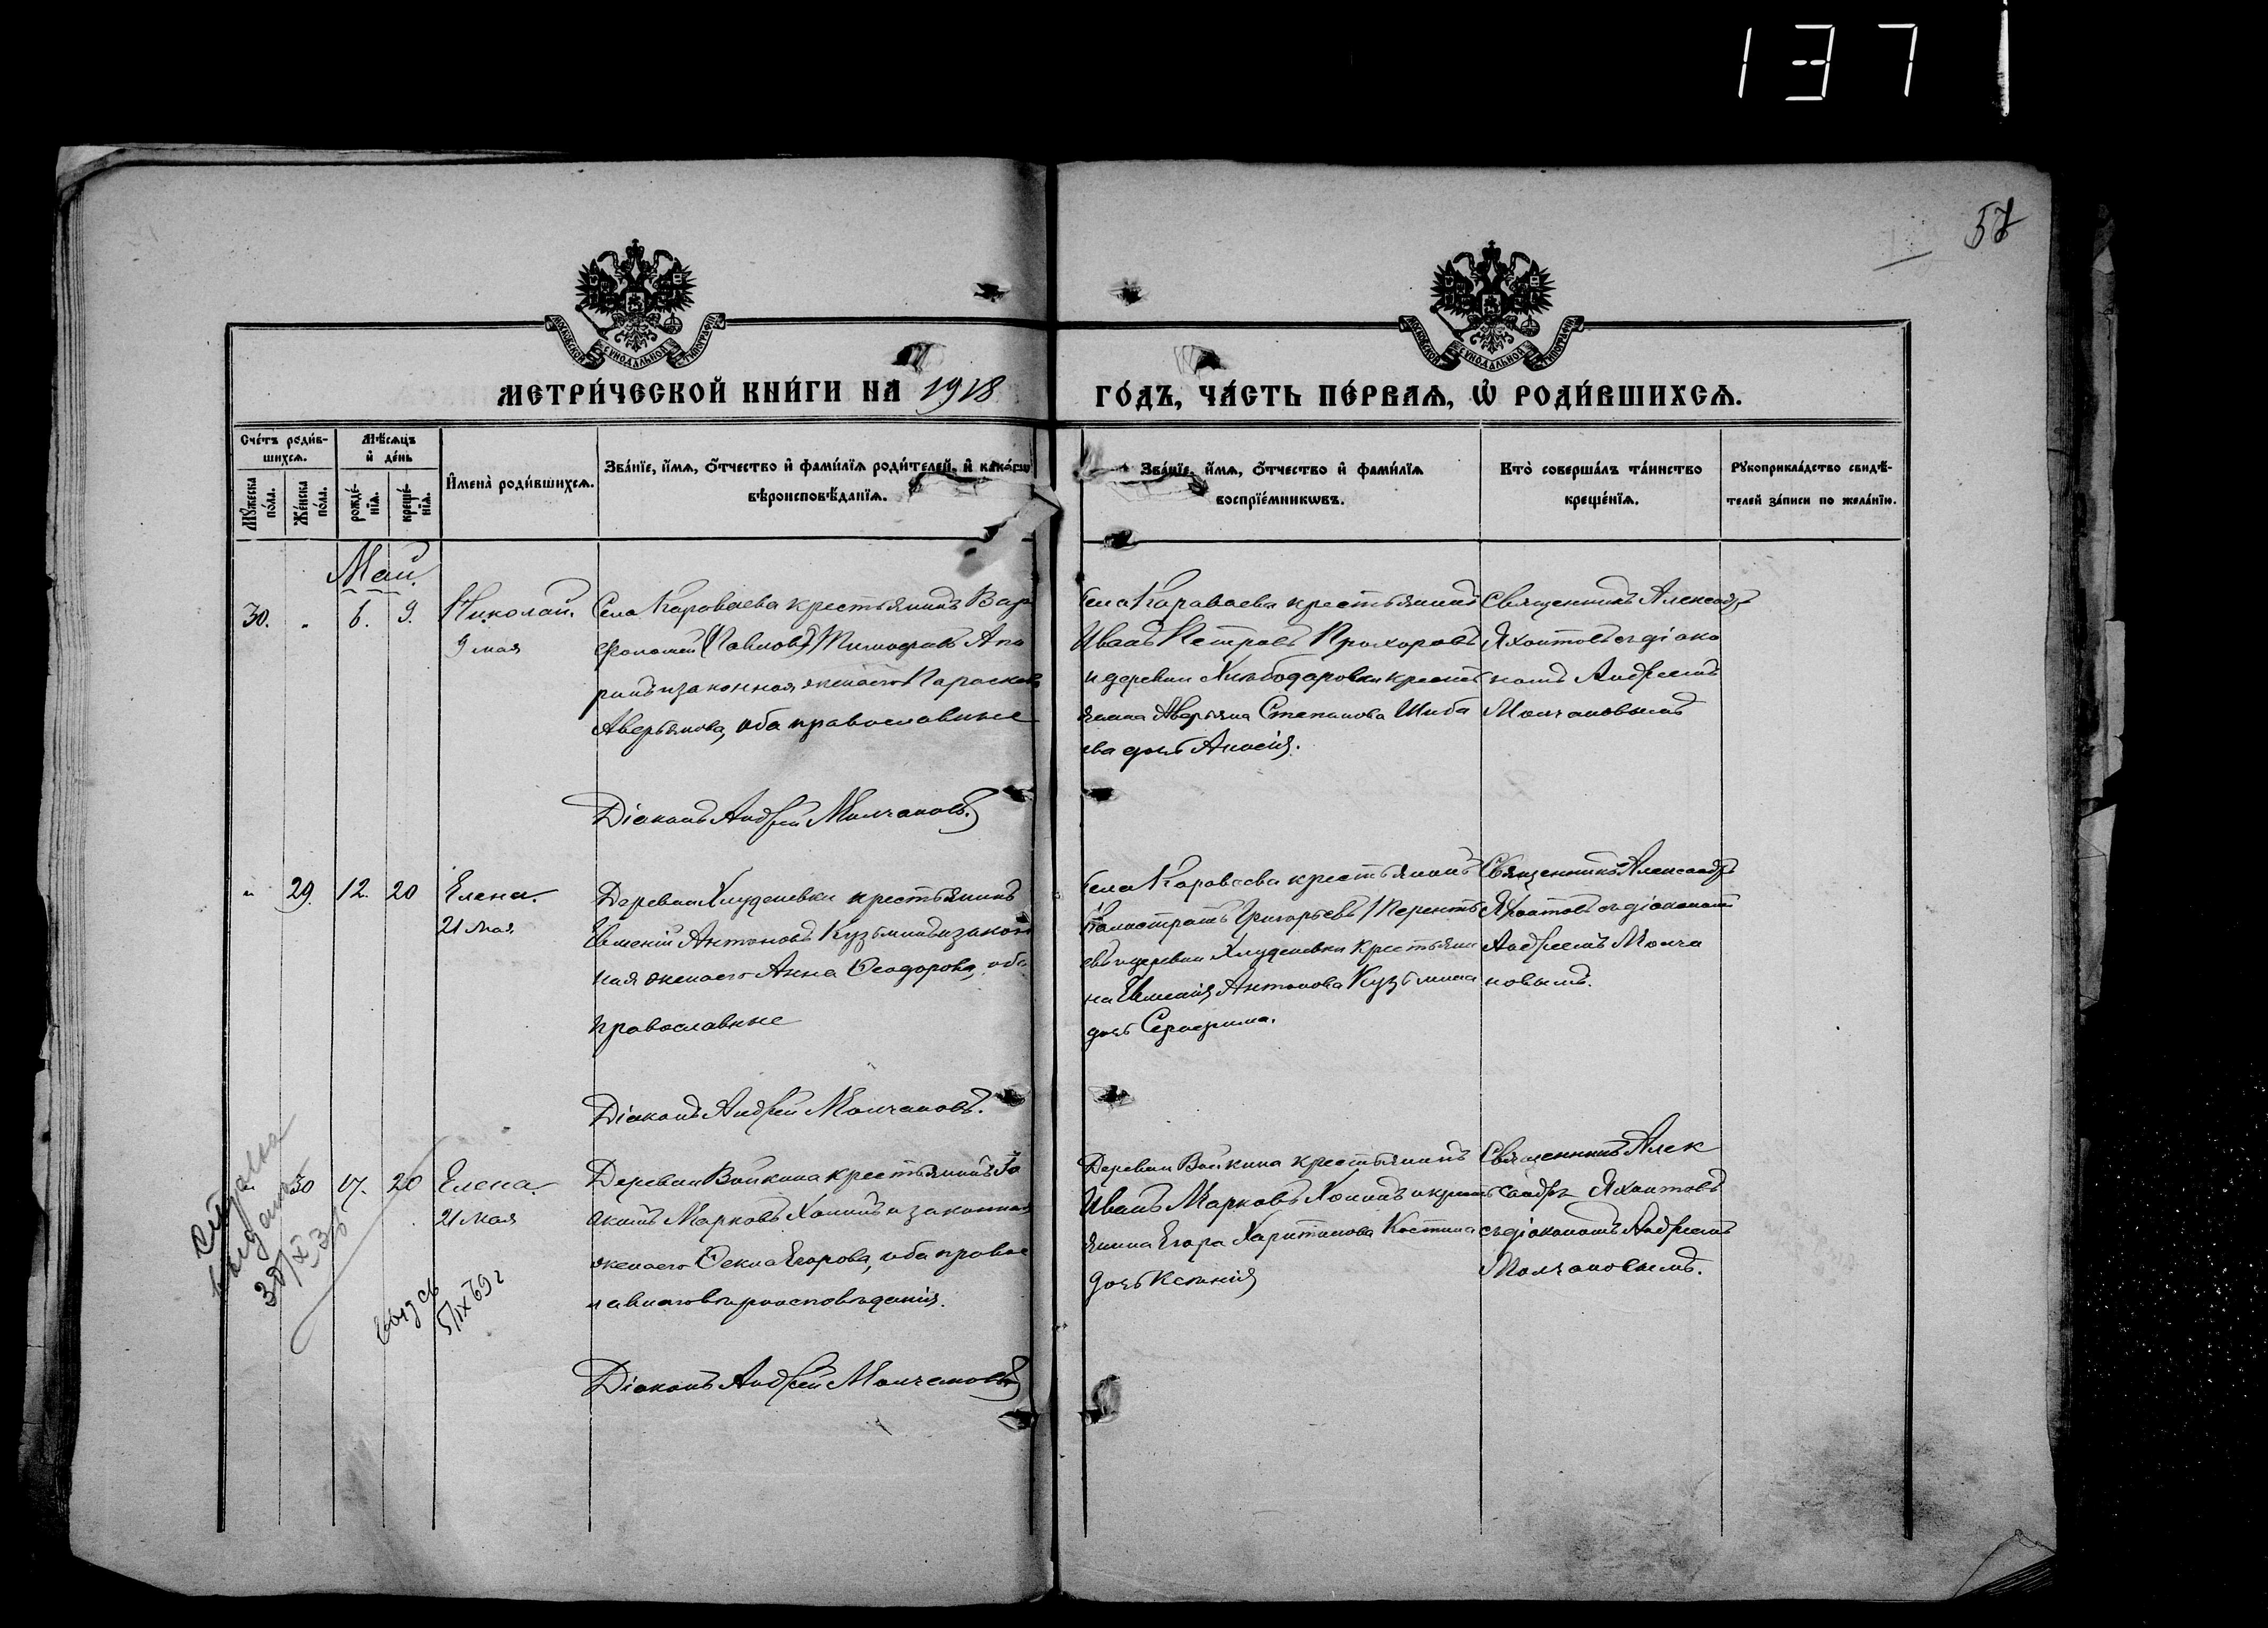 1371
57
МОСКОВСКОЙ СУНОДАЛЬНОЙ ТИПОГРАФІИ
МОСКОВСКОЙ СУНОДАЛЬНОЙ ТИПОГРАФІИ
МЕТРИ́ЧЕСКОЙ КНИ́ГИ НА 1918
ГО́ДЪ, ЧА́СТЬ ПЕ́РВАѦ, Ѡ҆ РОДИ́ВШИХСѦ.
Сче́тъ роди́в-
шихсѧ.
Му́жеска по́ла.
Же́нска по́ла.
Мѣ́сѧцъ
и҆ де́нь
рожде́-
нїѧ.
креще́-
нїѧ.
И҆мена̀ роди́вшихсѧ.
Зва́нїе, и҆́мѧ, ѻ҆́тчество и҆ фами́лїѧ роди́телей, и҆ како́гѡ
вѣроисповѣ́данїѧ.
Зва́нїе, и҆́мѧ, ѻ҆́тчество и҆ фами́лїѧ
воспрїе́мникѡвъ.
Кто̀ соверша́лъ та́инство
креще́нїѧ.
Рꙋкоприкла́дство свидѣ́-
телей за́писи по жела́нїю.
Май.
30. „ 6. 9. Николай.
9 мая
Села Короваева крестьянинъ Вар
фоломей Павловъ
и законная жена его Параскева
Аверьянова, оба православные
Діаконъ Андрей Молчановъ.
Села Караваева крестьянинъ
Иванъ Петровъ Прохоровъ
и деревни Хлѣбодаровки крест
янина Аверьяна Степанова Шиба
ева дочь Анисія.
Священникъ Александръ
Яхонтовъ съ діако
номъ Андреемъ
Молчановымъ
„ 29. 12. 20 Елена.
21 мая
Деревни крестьянинъ
Евменій Антоновъ Кузьминъ и закон
ная жена его Анна Ѳеодорова, оба
православные
Діаконъ Андрей Молчановъ.
Села Короваева крестьянинъ
Калистратъ Григорьевъ Терентъ
евъ и деревни крестьяни
на Евменія Антонова Кузьмина
дочь Серафима.
Священникъ Александръ
Яхонтовъ съ діакономъ
Андреемъ Молча
новымъ.
„ 30 17. 20 Елена.
21 мая
Деревни Войкина крестьянинъ Іо
акимъ Марковъ Хоминъ и законная
жена его Ѳекла Егорова, оба правос
лавнаго вѣроисповѣданія.
Діаконъ Андрей Молчановъ
Деревни Войкина крестьянинъ
Иванъ Марковъ Хоминъ и крест
янина Егора Харитонова Костина
дочь Ксенія
Священникъ Алек
сандръ Яхонтовъ
съ діакономъ Андреемъ
Молчановымъ.
справка
выдана
30/IX 36
5/IX 69 г